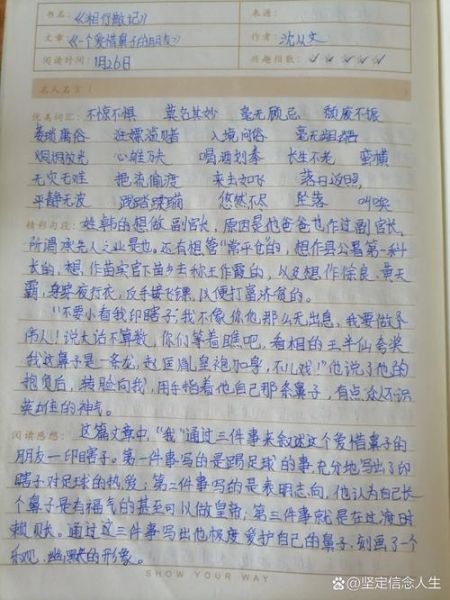 书名：《湘行散记》 来源：
文章：《一个爱惜鼻子的朋友》 作者：沈从文
阅读时间：1月26日 推荐指数：✓ ✓ ✓ ✓ ✓
名人名言（ ）
优美词汇： 不惊不惧 莫名其妙 毫无顾忌 颓废不振
委琐庸俗 狂嫖滥赌 入境问俗 毫无踌躇
炯炯放光 心雄万夫 喝酒划拳 长生不老 蛮横
无灾无难 把流偷渡 来去如飞 落日返照
平静无波 践踏玻璃 悠然不尽 坠落 叫唤
精彩句段： 姓韩的想做副官长，原因是他爸爸也作过副官长，
所谓承先人之业是也。还有想管"常平仓"的，想作县公署第一科
长的，想作苗实官下苗乡去称王作霸的，以及想作徐良、黄天
霸，身穿夜行衣，反手接飞镖，以便打富济贫的。
"不要小看我印瞎子，我不像你他那么无出息，我要做个
伟人！说大话不算数，你们等着瞧吧。看相的王半仙夸奖
我这鼻子是一条龙，赵匡胤黄袍加身，不儿戏！"他说了他的
抱负后，转脸向我，用手指着他自己那条鼻子，有点众人不识
英雄的神气。
阅读感想： 这篇文章中，"我"通过三件事来叙述这个爱惜鼻子的
朋友—印瞎子。第一件事写的是踢足球的事，充分地写出了印
瞎子对足球的热爱；第二件事写的是表明志向，他认为自己长
个鼻子是有福气的甚至可以做皇帝，第三件事就是在过渡时
赖账。通过这三件事写出他极度爱护自己的鼻子，刻画了一个
乐观，幽默的形象。
SHOW YOUR WAY
@坚定信念人生